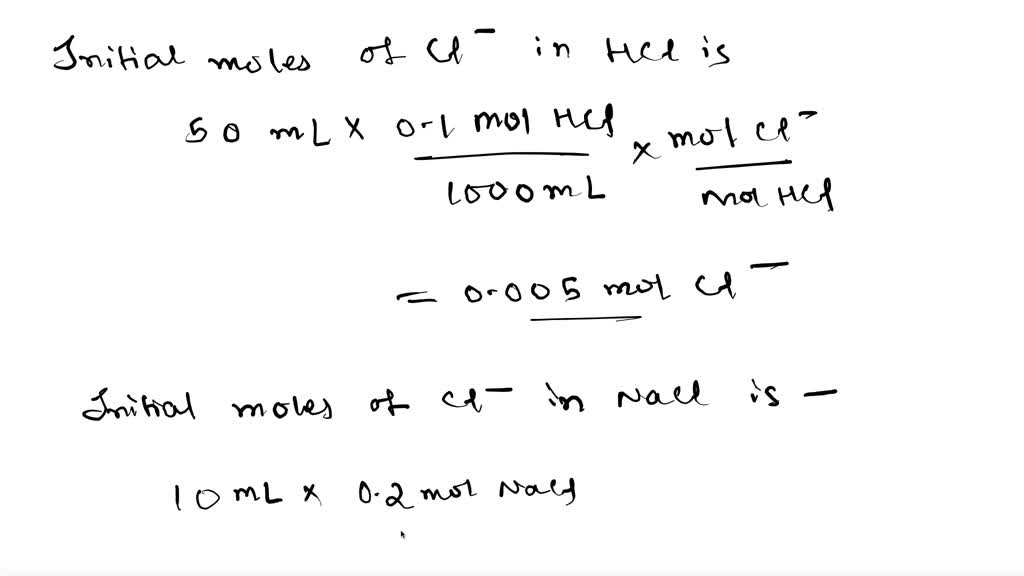 Initial moles of Cl⁻ in HCl is
50 mL × 0.1 mol HCl / 1000 mL × mol Cl⁻ / mol HCl
= 0.005 mol Cl⁻
Initial moles of Cl⁻ in NaCl is —
10 mL × 0.2 mol NaCl